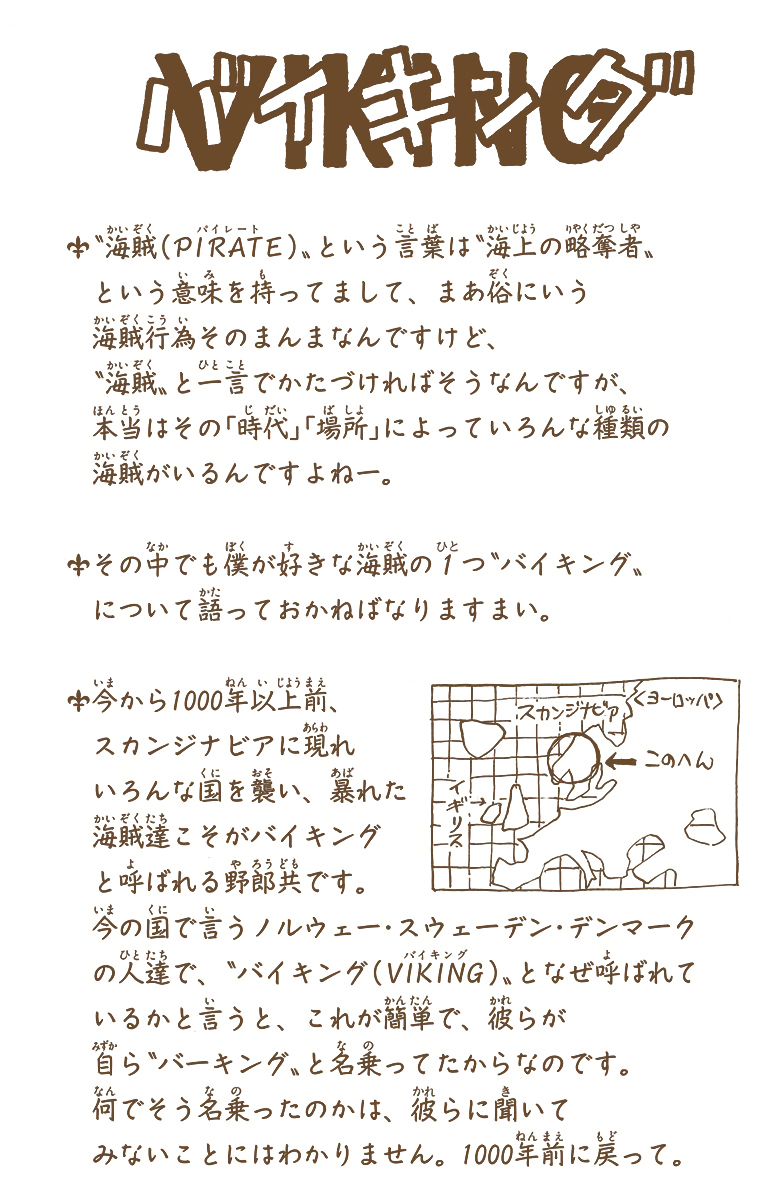 VIKING
バイキング
⚜〝海賊(PIRATE)〟という言葉は〝海上の略奪者〟
という意味を持ってまして、まあ俗にいう
海賊行為そのまんまなんですけど、
〝海賊〟と一言でかたづければそうなんですが、
本当はその「時代」「場所」によっていろんな種類の
海賊がいるんですよねー。
⚜その中でも僕が好きな海賊の1つ〝バイキング〟
について語っておかねばなりますまい。
⚜今から1000年以上前、
スカンジナビアに現れ
いろんな国を襲い、暴れた
海賊達こそがバイキング
と呼ばれる野郎共です。
スカンジナビア
〈ヨーロッパ〉
このへん
イギリス
今の国で言うノルウェー・スウェーデン・デンマーク
の人達で、〝バイキング(VIKING)〟となぜ呼ばれて
いるかと言うと、これが簡単で、彼らが
自ら〝バーキング〟と名乗ってたからなのです。
何でそう名乗ったのかは、彼らに聞いて
みないことにはわかりません。1000年前に戻って。